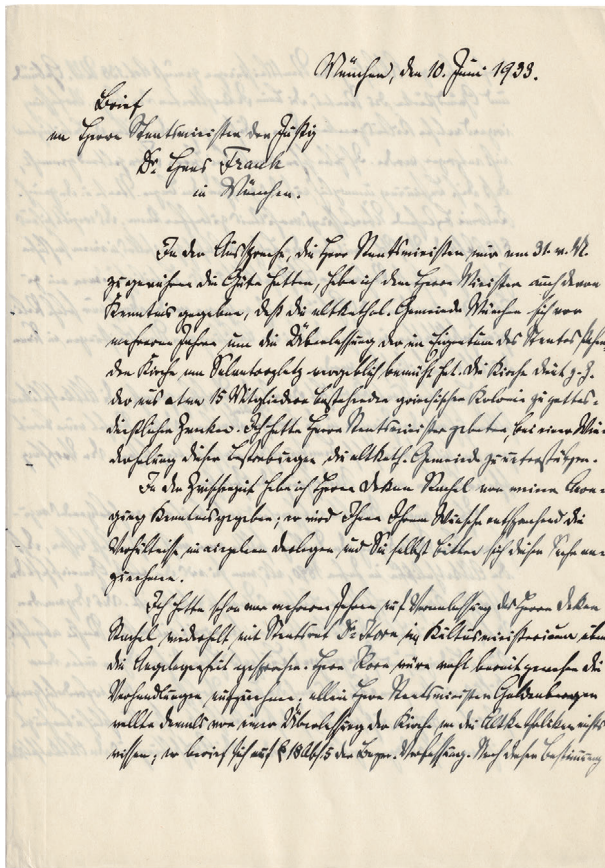 München, den 10. Juni 1933.
Brief
an Herrn Staatsminister der Justiz
Dr. Hans Frank
in München.
In der Aussprache, die Herr Staatsminister mir am 31. v. M.
zu gewähren die Güte hatten, habe ich dem Herrn Minister auch davon
Kenntnis gegeben, daß die altkathol. Gemeinde München sich vor
mehreren Jahren um die Überlassung der im Eigentum des Staates stehen-
den Kirche am Salvatorplatz vergeblich bemüht hat. Die Kirche dient z. Z.
der aus etwa 15 Mitgliedern bestehenden griechischen Kolonie zu gottes-
dienstlichen Zwecken. Ich hatte Herrn Staatsminister gebeten, bei einer Wie-
derholung dieser Bestrebungen, die altkath. Gemeinde zu unterstützen.
In der Zwischenzeit habe ich Herrn Dekan Rachel von meiner Anre-
gung Kenntnis gegeben; er wird Ihnen Ihrem Wunsche entsprechend die
Verhältnisse darlegen und Sie selbst bitten sich dieser Sache an-
zunehmen.
Ich hatte schon vor mehreren Jahren auf Veranlassung des Herrn Dekan
Rachel wiederholt mit Staatsrat Dr. Korn im Kultusministerium über
die Angelegenheit gesprochen. Herr Korn wäre wohl bereit gewesen die
Verhandlungen aufzunehmen, allein Herr Staatsminister Goldenberger
wollte damals von einer Überlassung der Kirche an die Altkatholiken nichts
wissen; er berief sich auf § 18 Abs. 5 der Bayer. Verfassung. Nach dieser Bestimmung